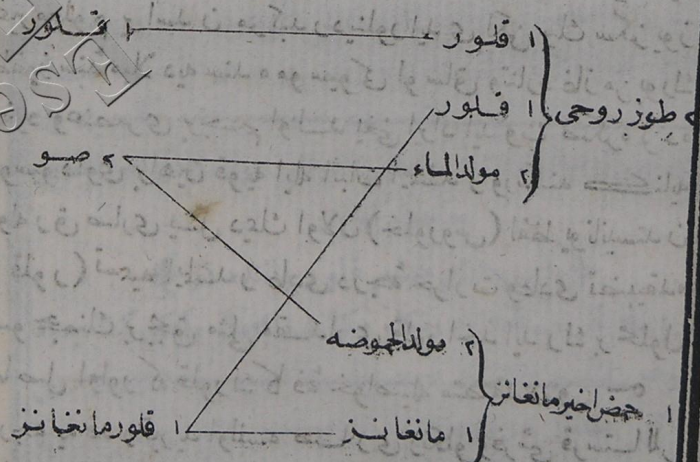 ١ قلور ١ قلور
٢ طوز روحی ١ قلور
٢ مولدالماء ٢ صو
٢ مولدالحموضه
١ حمض اخیر مانغانز
١ مانغانز ١ قلور مانغانز